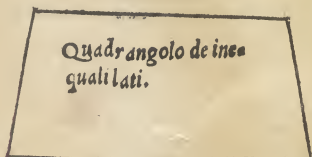 Quadrangolo de ine=
quali lati.